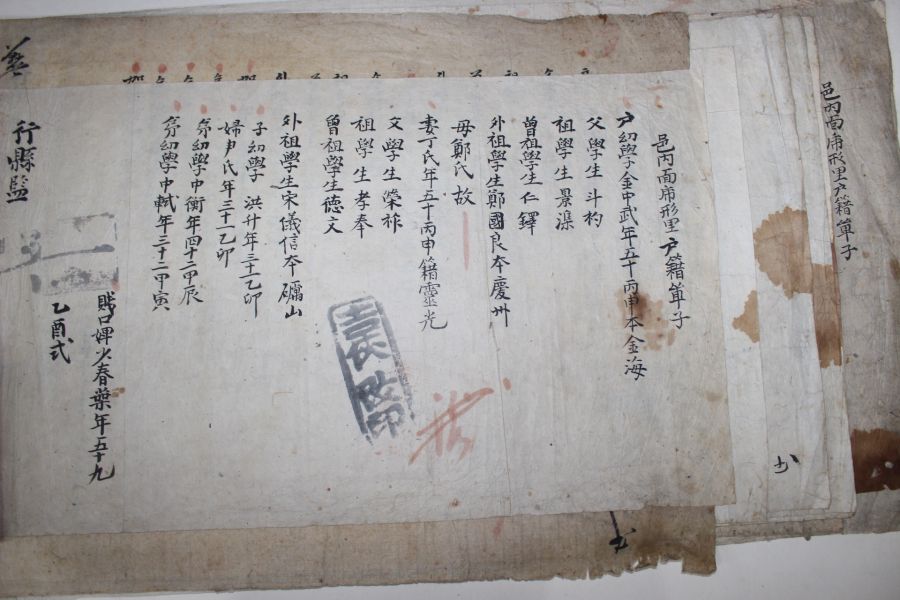 邑內面席形里戶籍單子
邑內面席形里戶籍單子
戶幼學金中武年五十丙申本金海
父學生斗杓
祖學生景湜
曾祖學生仁鐸
外祖學生鄭國良本慶州
母鄭氏故
妻丁氏年五十丙申籍靈光
父學生榮祚
祖學生孝奉
曾祖學生德文
外祖學生宋儀信本礪山
子幼學洪升年三十一乙卯
婦尹氏年三十一乙卯
弟幼學中衡年四十二甲辰
弟幼學中軾年三十二甲寅
賤口婢少春葉年五十九
乙酉式
行縣監